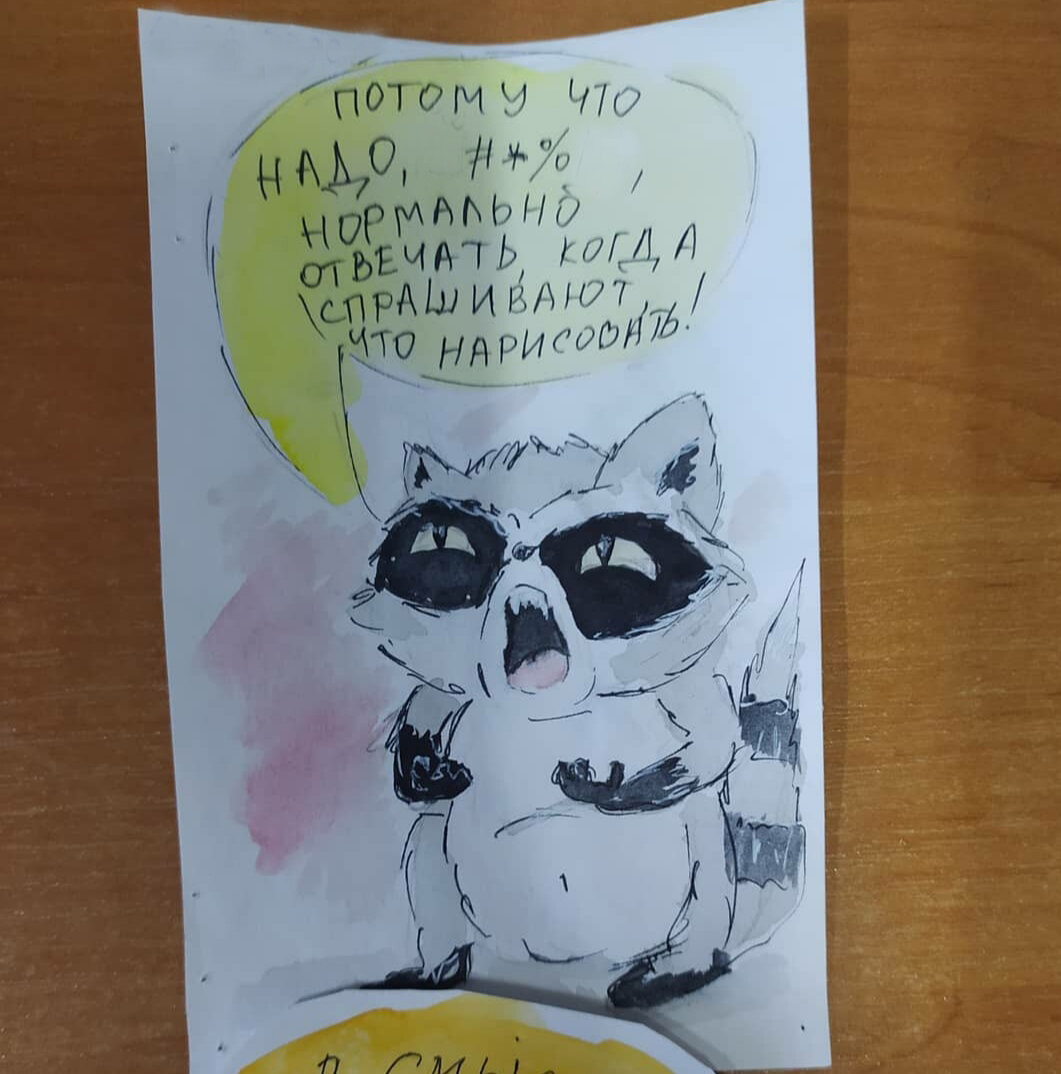 ПОТОМУ ЧТО
НАДО, #*% ,
НОРМАЛЬНО
ОТВЕЧАТЬ, КОГДА
СПРАШИВАЮТ,
ЧТО НАРИСОВАТЬ!